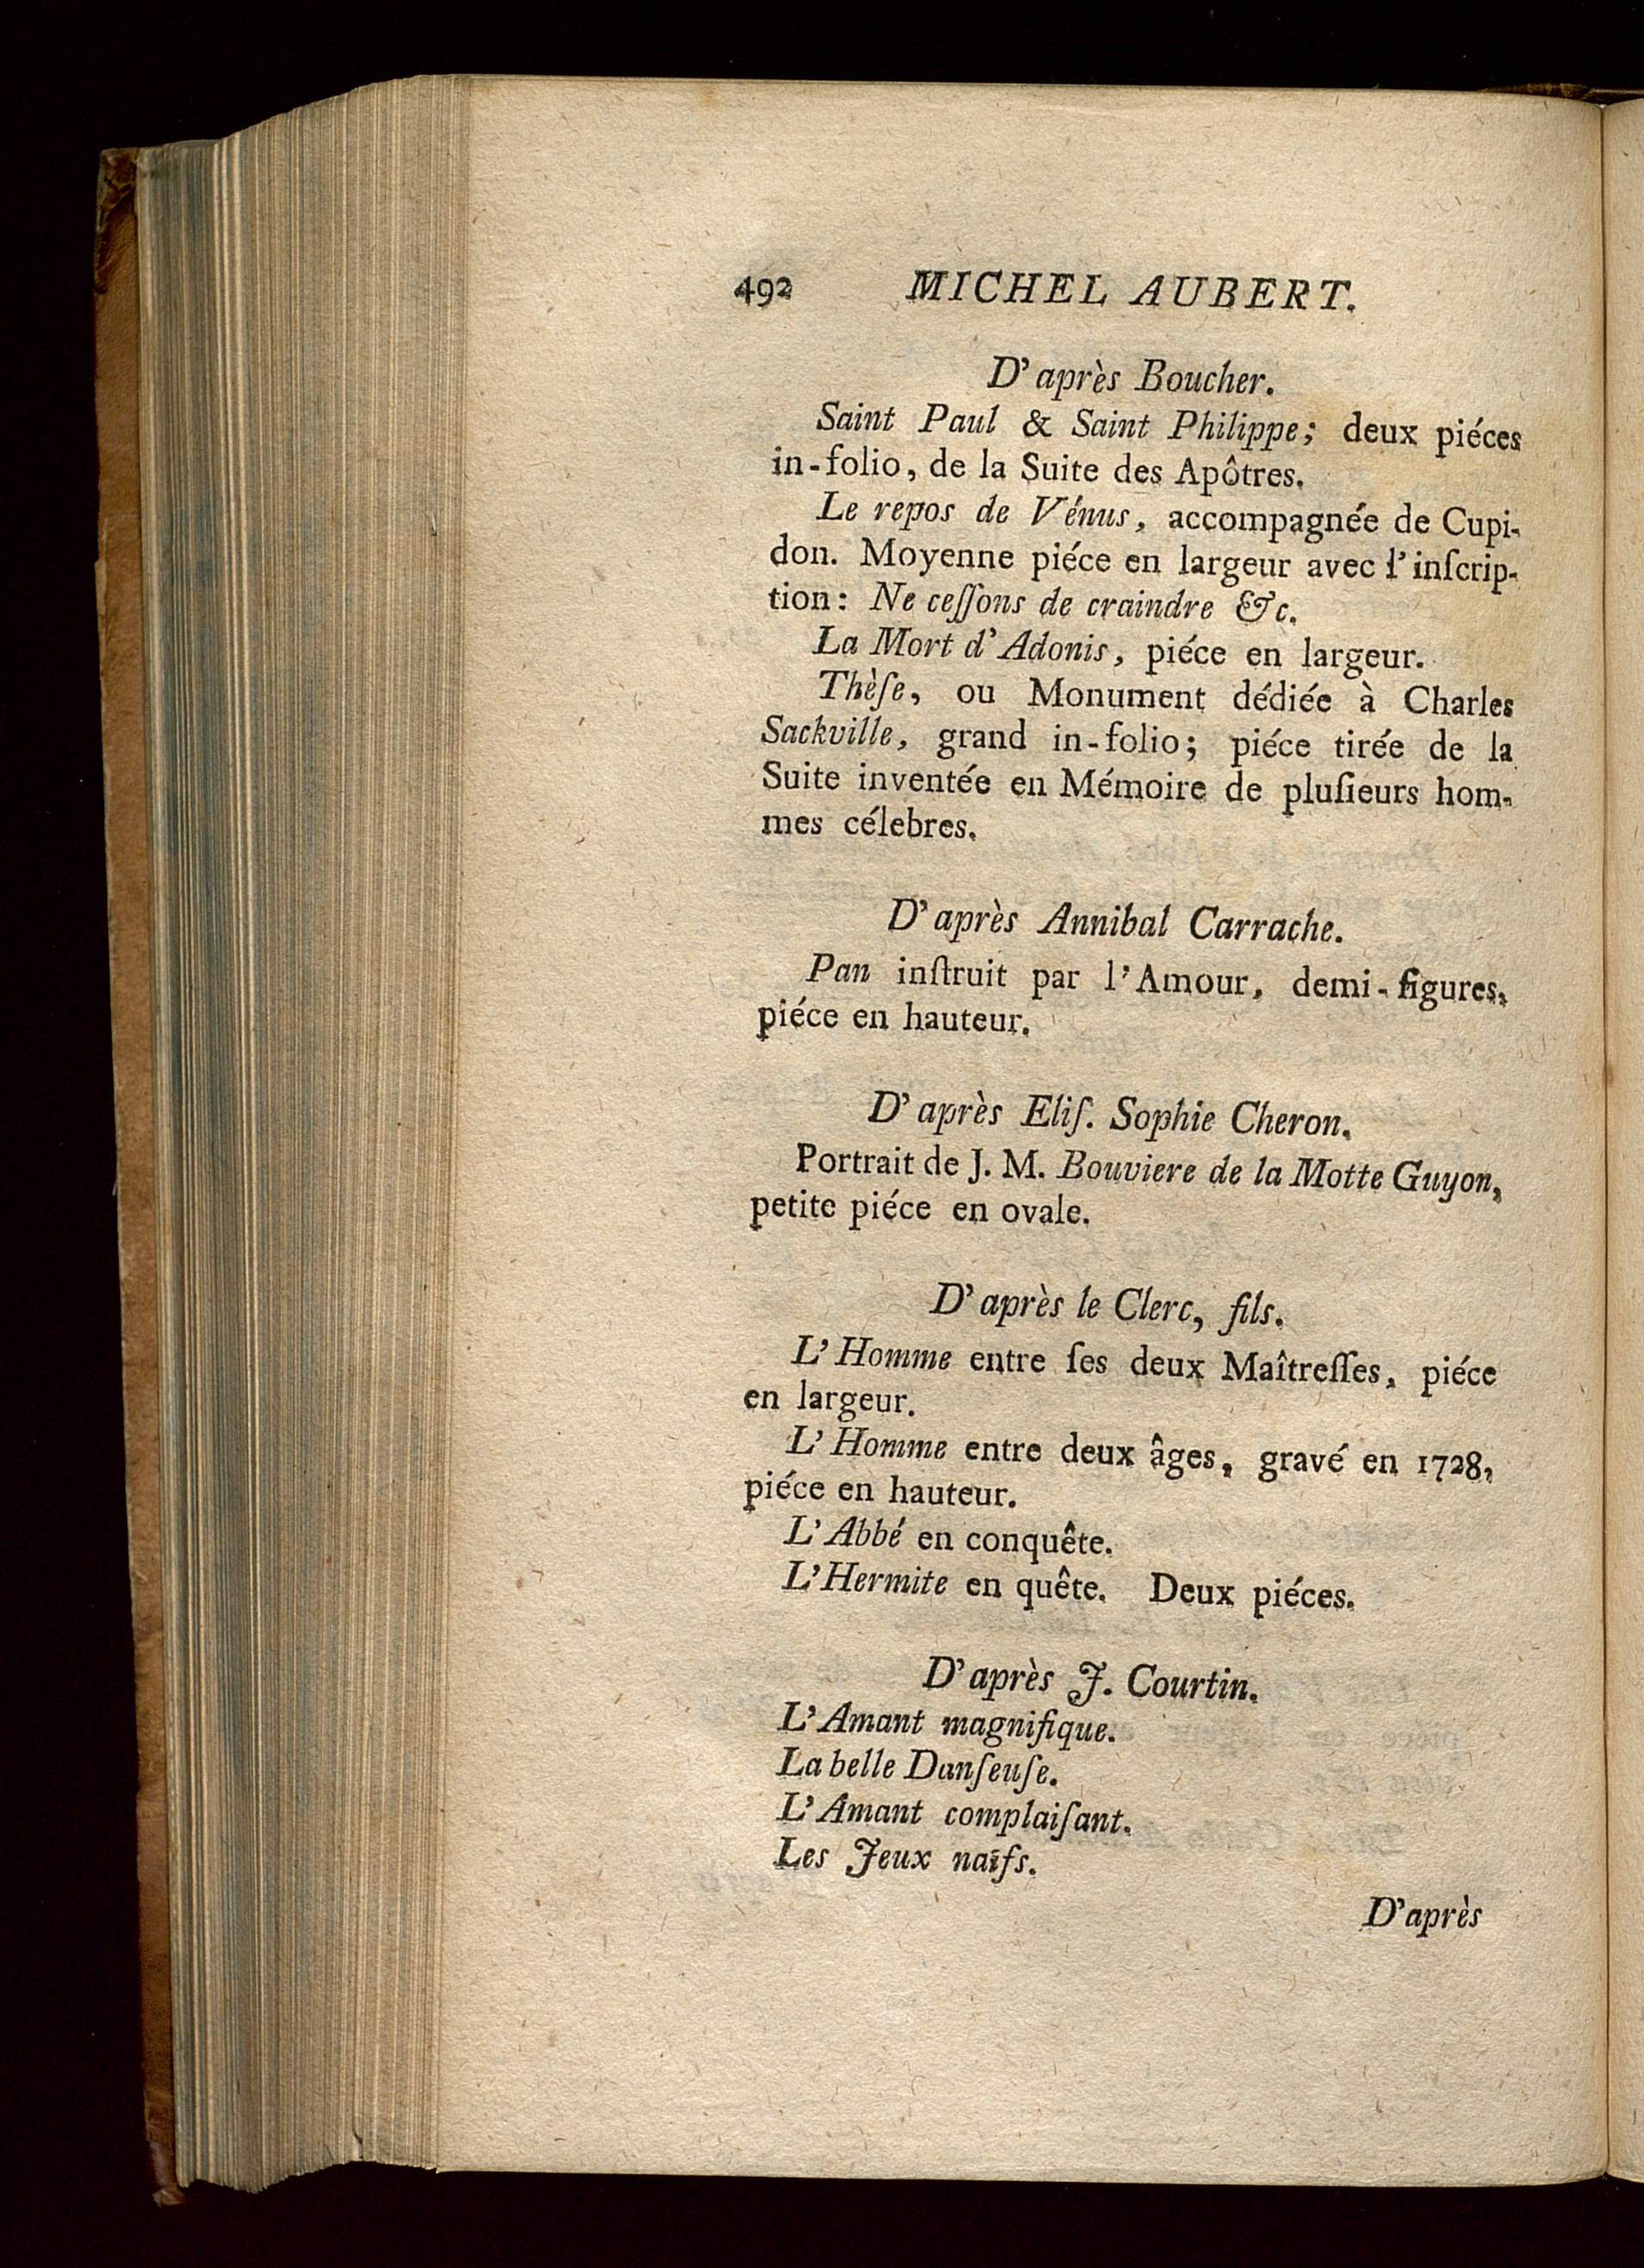 492 MICHEL AUBERT.
D'après Boucher.
Saint Paul & Saint Philippe; deux piéces
in-folio, de la Suite des Apôtres.
Le repos de Vénus, accompagnée de Cupi-
don. Moyenne piéce en largeur avec l'inſcrip-
tion: Ne ceſſons de craindre &c.
La Mort d'Adonis, piéce en largeur.
Thèſe, ou Monument dédiée à Charles
Sackville, grand in-folio; piéce tirée de la
Suite inventée en Mémoire de pluſieurs hom-
mes célebres.
D'après Annibal Carrache.
Pan inſtruit par l'Amour, demi-figures,
piéce en hauteur.
D'après Eliſ. Sophie Cheron.
Portrait de J. M. Bouviere de la Motte Guyon,
petite piéce en ovale.
D'après le Clerc, fils.
L'Homme entre ſes deux Maîtreſſes, piéce
en largeur.
L'Homme entre deux âges, gravé en 1728,
piéce en hauteur.
L'Abbé en conquête.
L'Hermite en quête. Deux piéces.
D'après J. Courtin.
L'Amant magnifique.
La belle Danſeuſe.
L'Amant complaiſant.
Les Jeux naïfs.
D'après